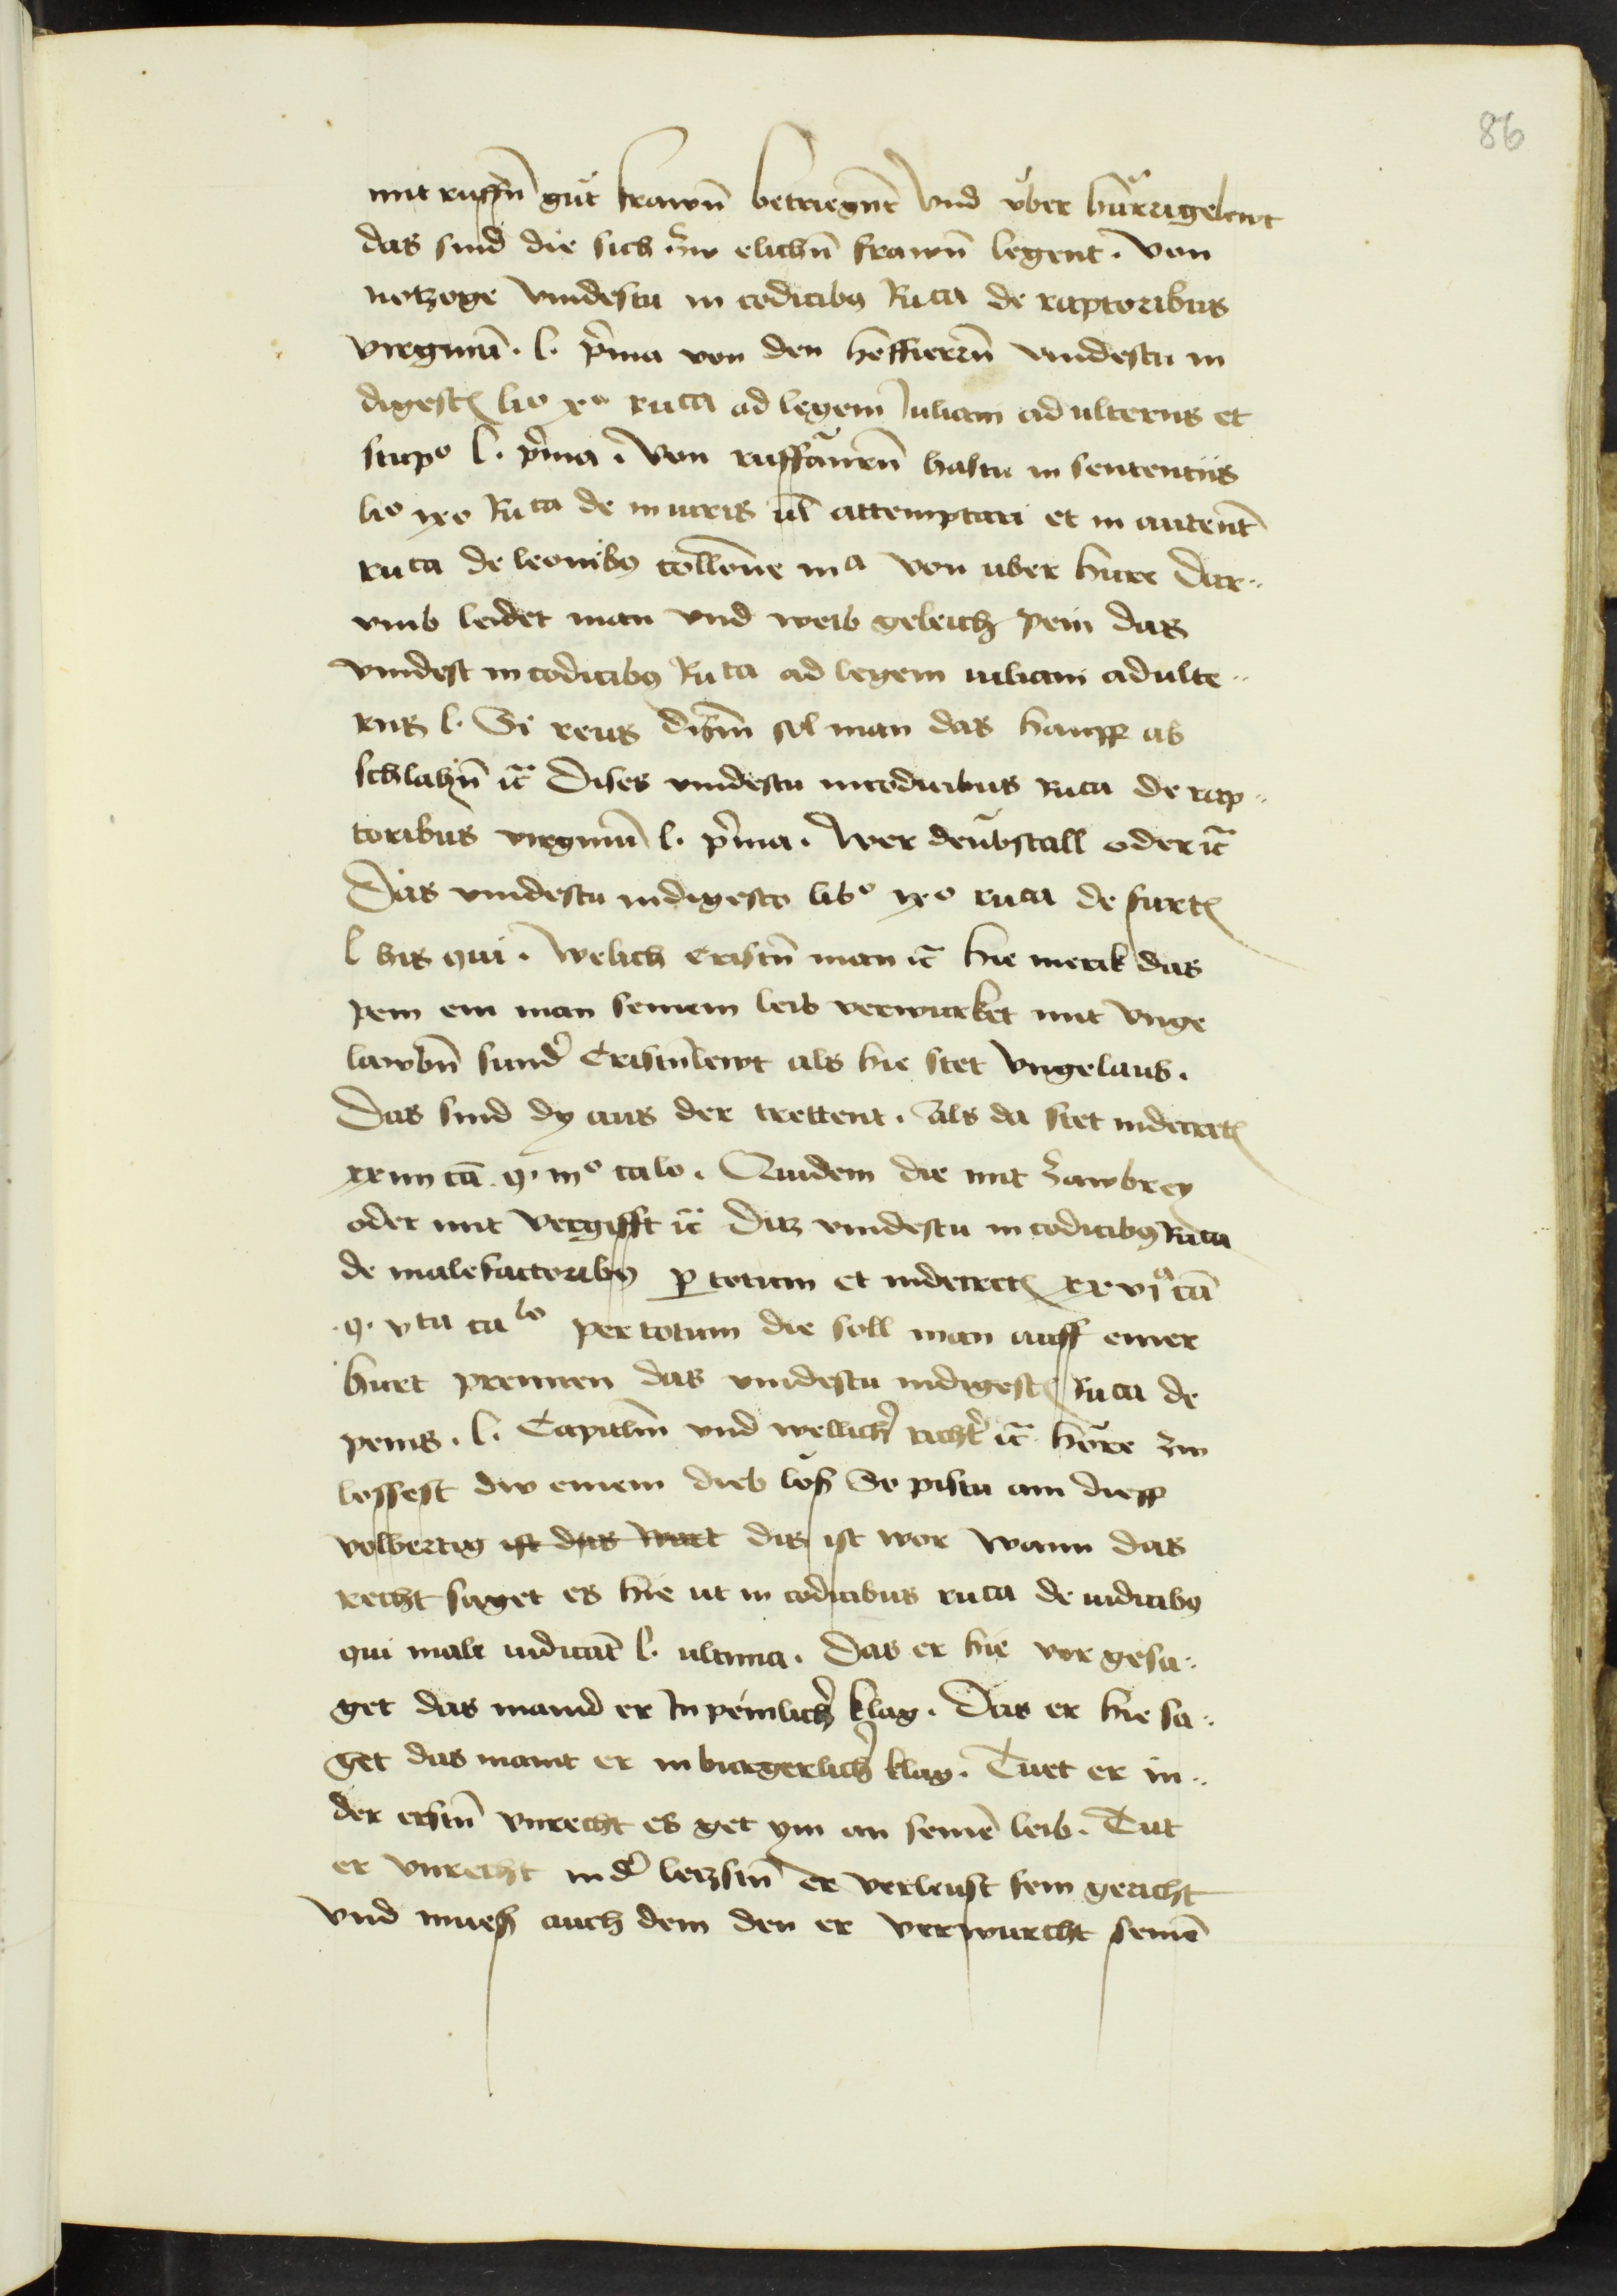 86
mit ruffñ gůt frawñ betriegñt vnd vͤber hůrrigelewt
das sind die sich zw elichñ frawñ legent . von
notzoge vindestu in codicibꝰ Ruca de raptoribus
virginū . l . p̄ma von den heffierrñ vindestu in
digestꝭ lio xo ruca ad legem Juliam adulteriis et
stupo l . p̄ma . Von ruffãnrñ hastu in sententiis
lio ixo Ruca de in iuris ul attemptari et in autent̄
ruca de leonibꝰ collone ma von uber hure Dar¨
vmb leidet man vnd weib geleich pein das
vindest in codicibꝰ Ruca ad legem iuliam adulte¨
riis l . Si reus dism̄ sol man das haupp ab
schlahñ ic̃ Dises vindestu in codicibus Ruca de rap¨
toribus virginū l . p̄ma . Wer deubstall oder ic̃
Das vindestu in digesto libo ixo ruca de furtꝭ
l his qui . Welich Cristñ man ic̃ hie merk das
pein ein man seinem leib verwurket mit vnge
lawbñ sund̾ Cristñlewt als hie stet vngelaub .
Das sind dy aus der trettent . Als da stet in decretꝭ
xxiiii cā . q . iiio calo . Quidem die mit zawbrey
oder mit vergifft ic̃ Ditz vindestu in codicibꝰ Ruca
de malefactoribꝰ ꝑ totum et in decretꝭ xxvja cā
. q . vta calo per totum die soll man auff einer
hurt prennen das vindestu in digestꝭ Ruca de
penis . l . Capitlm̄ vnd wellich̾ richt̾ ic̃ hore zw
lossest dw einem dieb loß So pistu am diepp
volbertig ist das wort dis ist wor wann das
recht saget es hie ut in codicibus ruca de iudicibꝰ
qui male iudicāt l . ultima . Das er hie vor gesa¨
get das maind er In peinlich̾ klag . Das er hie sa¨
get das maint er in burgerlich̾ klag . Tuet er in¨
der erstñ vnrecht es get ym an seinē leib . Tut
er vnrecht in d̾ leczstñ er verleust sein gericht
vnd mueß auch dem den er verwurcht seinē